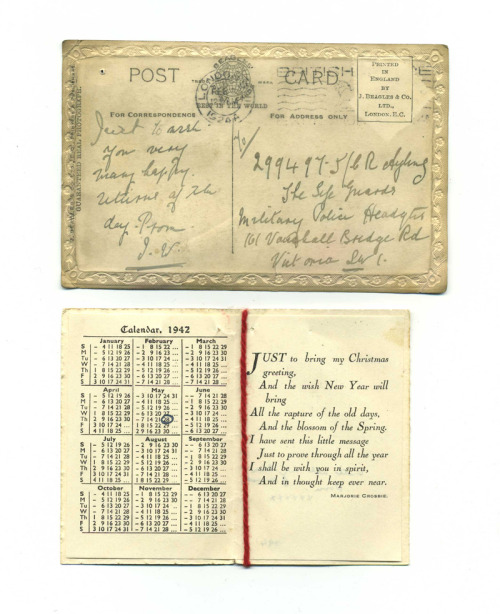 POST CARD
LONDON
BEST IN THE WORLD
GUARANTEED REAL PHOTOGRAPH.
PRINTED
IN
ENGLAND
BY
J. BEAGLES & Co.
LTD.,
LONDON. E.C.
FOR CORRESPONDENCE
FOR ADDRESS ONLY
Just to wish
you very
many happy
returns of the
day. From
J. V.
299497. S/C R Ayling
The Life Guards
Military Police Headqtrs
101 Vauxhall Bridge Rd
Victoria SW 1.
Calendar, 1942
January February March
S – 4 11 18 25 – 1 8 15 22 ... – 1 8 15 22 29
M – 5 12 19 26 – 2 9 16 23 ... – 2 9 16 23 30
Tu – 6 13 20 27 – 3 10 17 24 ... – 3 10 17 24 31
W – 7 14 21 28 – 4 11 18 25 ... – 4 11 18 25 ...
Th 1 8 15 22 29 – 5 12 19 26 ... – 5 12 19 26 ...
F 2 9 16 23 30 – 6 13 20 27 ... – 6 13 20 27 ...
S 3 10 17 24 31 – 7 14 21 28 ... – 7 14 21 28 ...
April May June
S – 5 12 19 26 – 3 10 17 24 31 – 7 14 21 28
M – 6 13 20 27 – 4 11 18 25 ... 1 8 15 22 29
Tu – 7 14 21 28 – 5 12 19 26 ... 2 9 16 23 30
W 1 8 15 22 29 – 6 13 20 27 ... 3 10 17 24 ...
Th 2 9 16 23 30 – 7 14 21 28 ... 4 11 18 25 ...
F 3 10 17 24 ... 1 8 15 22 29 ... 5 12 19 26 ...
S 4 11 18 25 ... 2 9 16 23 30 ... 6 13 20 27 ...
July August September
S – 5 12 19 26 – 2 9 16 23 30 – 6 13 20 27
M – 6 13 20 27 – 3 10 17 24 31 – 7 14 21 28
Tu – 7 14 21 28 – 4 11 18 25 ... 1 8 15 22 29
W 1 8 15 22 29 – 5 12 19 26 ... 2 9 16 23 30
Th 2 9 16 23 30 – 6 13 20 27 ... 3 10 17 24 ...
F 3 10 17 24 31 – 7 14 21 28 ... 4 11 18 25 ...
S 4 11 18 25 ... 1 8 15 22 29 ... 5 12 19 26 ...
October November December
S – 4 11 18 25 – 1 8 15 22 29 – 6 13 20 27
M – 5 12 19 26 – 2 9 16 23 30 – 7 14 21 28
Tu – 6 13 20 27 – 3 10 17 24 ... 1 8 15 22 29
W – 7 14 21 28 – 4 11 18 25 ... 2 9 16 23 30
Th 1 8 15 22 29 – 5 12 19 26 ... 3 10 17 24 31
F 2 9 16 23 30 – 6 13 20 27 ... 4 11 18 25 ...
S 3 10 17 24 31 – 7 14 21 28 ... 5 12 19 26 ...
JUST to bring my Christmas
greeting,
And the wish New Year will
bring
All the rapture of the old days,
And the blossom of the Spring.
I have sent this little message
Just to prove through all the year
I shall be with you in spirit,
And in thought keep ever near.
MARJORIE CROSBIE.